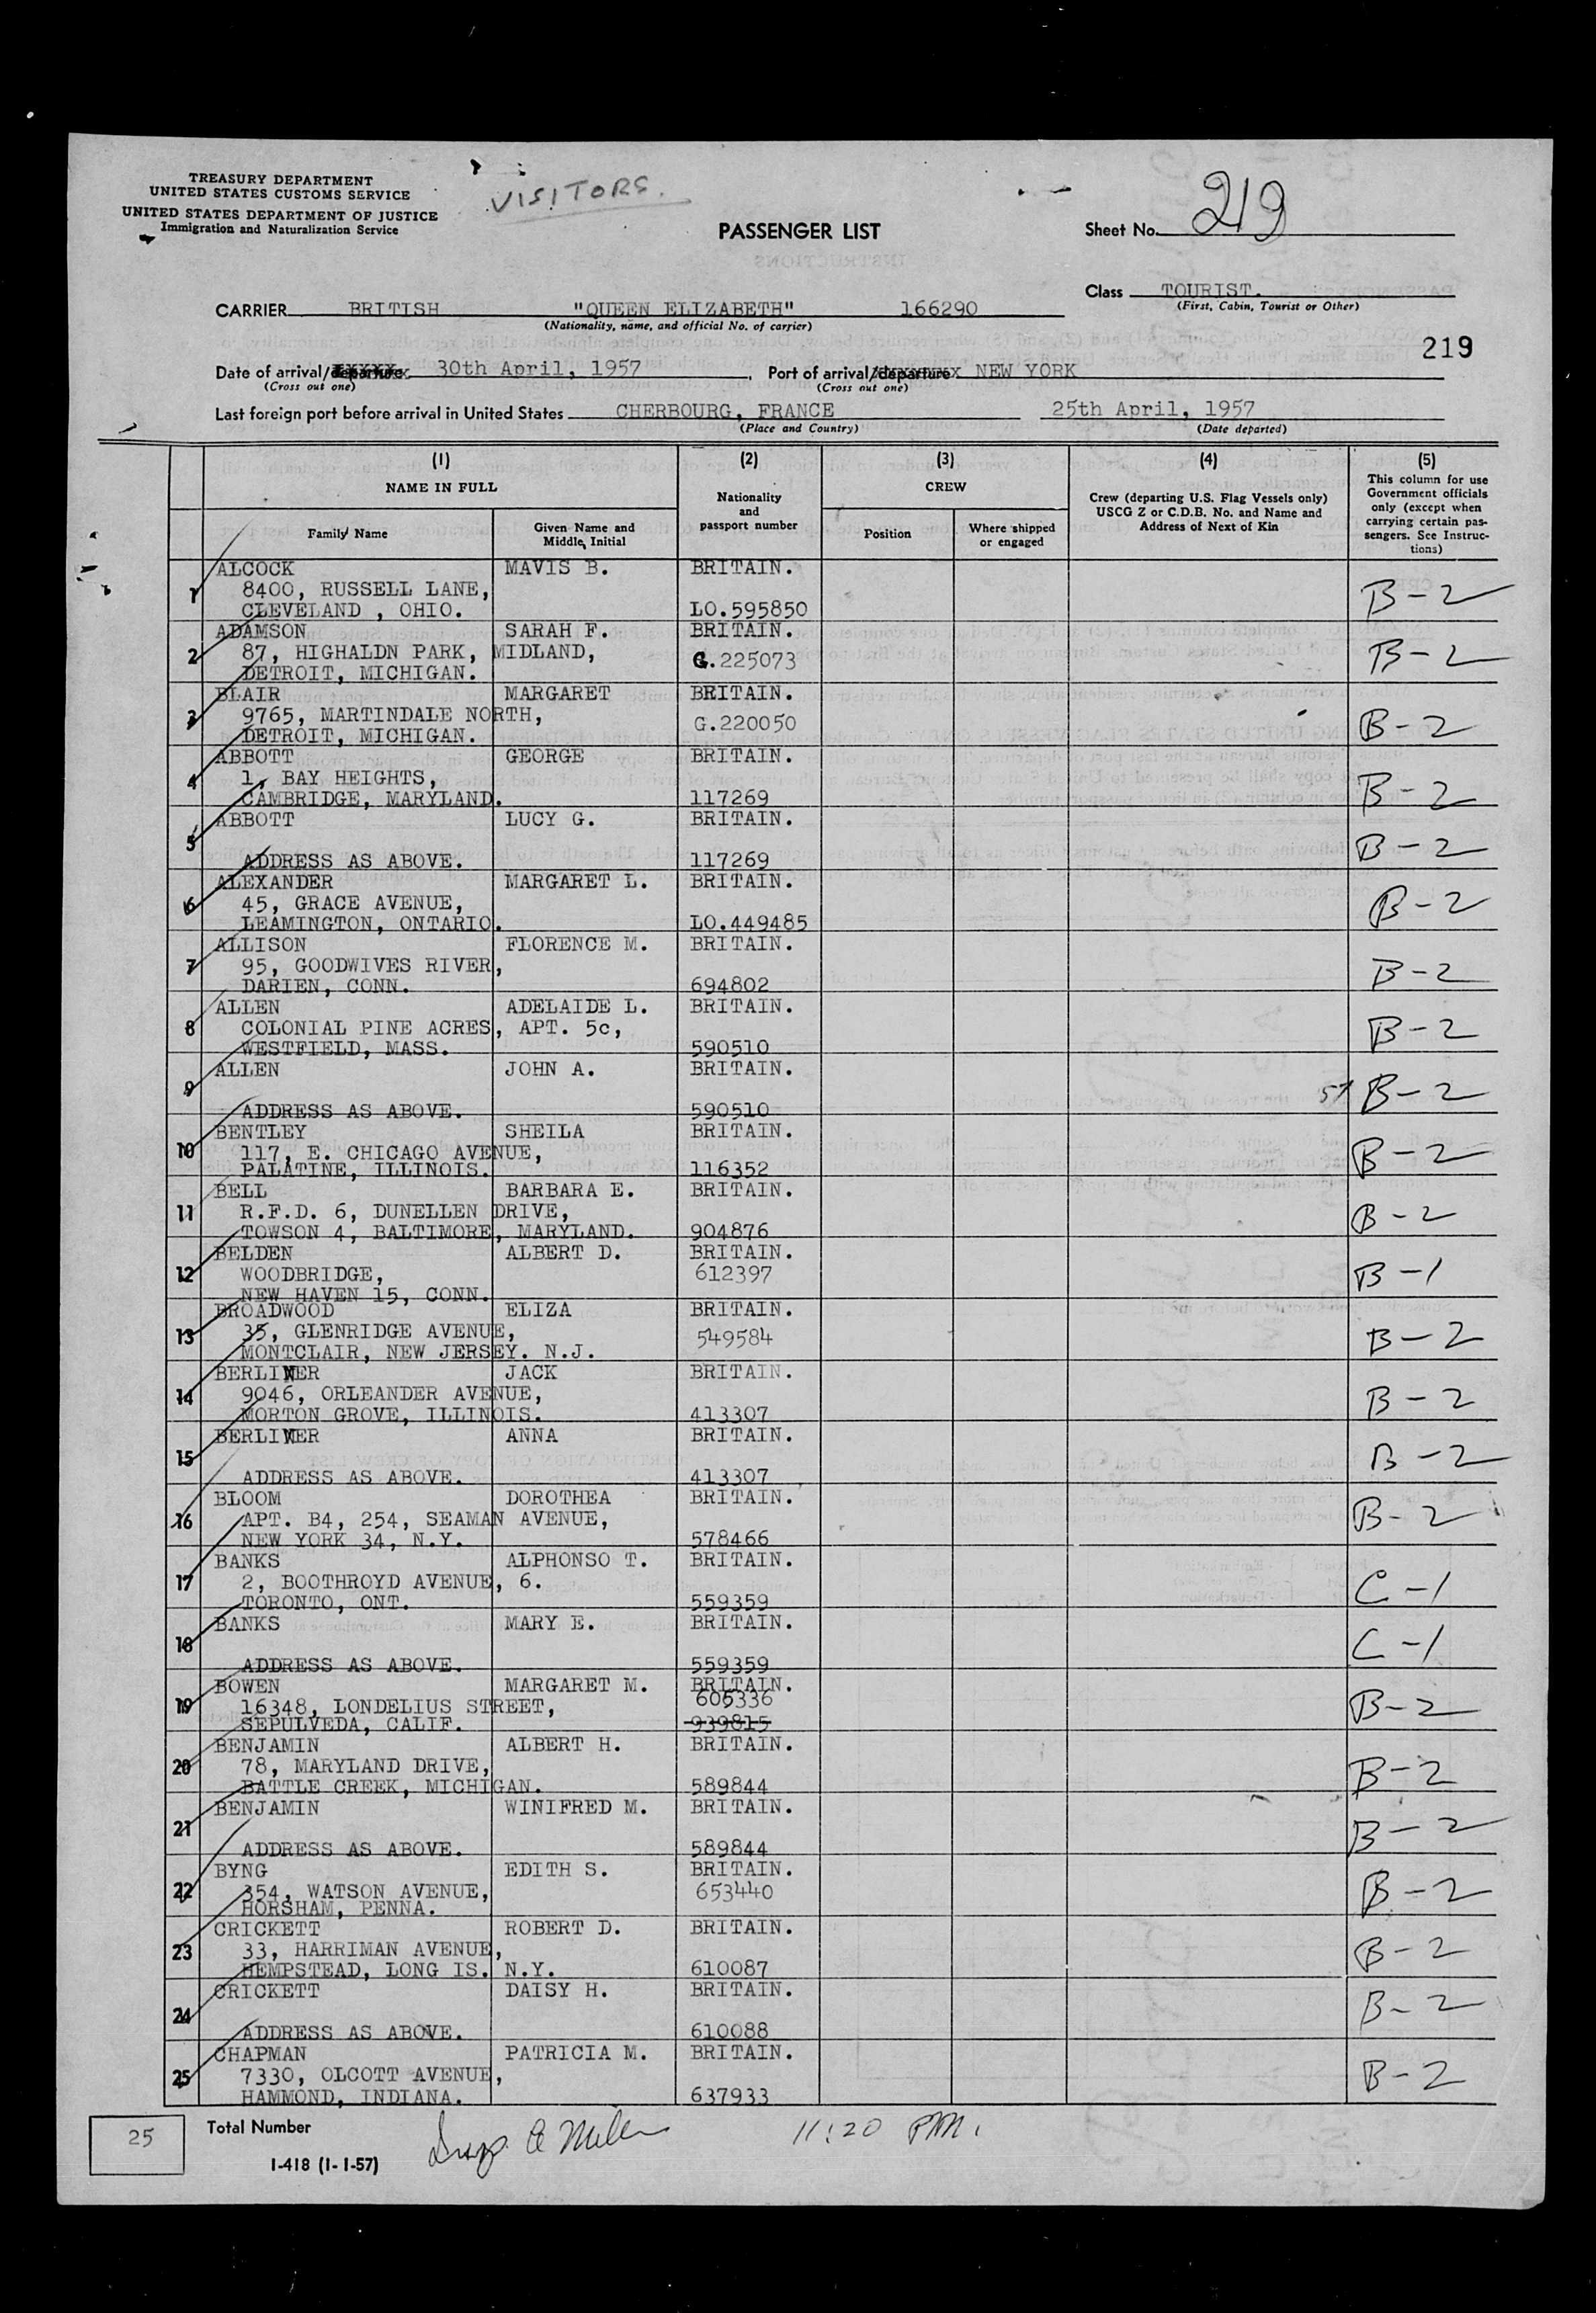 TREASURY DEPARTMENT
UNITED STATES CUSTOMS SERVICE
UNITED STATES DEPARTMENT OF JUSTICE
Immigration and Naturalization Service
VISITORS.
PASSENGER LIST
Sheet No. 219
Class TOURIST.
(First, Cabin, Tourist or Other)
CARRIER BRITISH "QUEEN ELIZABETH" 166290
(Nationality, name, and official No. of carrier)
219
Date of arrival/departure 30th April, 1957. Port of arrival/departure NEW YORK
(Cross out one) (Cross out one)
Last foreign port before arrival in United States CHERBOURG, FRANCE 25th April, 1957
(Place and Country) (Date departed)
(1) (2) (3) (4) (5)
NAME IN FULL
Family Name
Given Name and Middle Initial
Nationality and passport number
CREW
Position
Where shipped or engaged
Crew (departing U.S. Flag Vessels only) USCG Z or C.D.B. No. and Name and Address of Next of Kin
This column for use Government officials only (except when carrying certain passengers. See Instructions)
1 ALCOCK MAVIS B. BRITAIN.
8400, RUSSELL LANE,
CLEVELAND , OHIO. LO.595850 B-2
2 ADAMSON SARAH F. BRITAIN.
87, HIGHALDN PARK, MIDLAND, G.225073 B-2
DETROIT, MICHIGAN.
3 BLAIR MARGARET BRITAIN.
9765, MARTINDALE NORTH, G.220050 B-2
DETROIT, MICHIGAN.
4 ABBOTT GEORGE BRITAIN.
1, BAY HEIGHTS,
CAMBRIDGE, MARYLAND. 117269 B-2
5 ABBOTT LUCY G. BRITAIN.
ADDRESS AS ABOVE. 117269 B-2
6 ALEXANDER MARGARET L. BRITAIN.
45, GRACE AVENUE,
LEAMINGTON, ONTARIO. LO.449485 B-2
7 ALLISON FLORENCE M. BRITAIN.
95, GOODWIVES RIVER,
DARIEN, CONN. 694802 B-2
8 ALLEN ADELAIDE L. BRITAIN.
COLONIAL PINE ACRES, APT. 5c,
WESTFIELD, MASS. 590510 B-2
9 ALLEN JOHN A. BRITAIN.
ADDRESS AS ABOVE. 590510 57 B-2
10 BENTLEY SHEILA BRITAIN.
117, E. CHICAGO AVENUE,
PALATINE, ILLINOIS. 116352 B-2
11 BELL BARBARA E. BRITAIN.
R.F.D. 6, DUNELLEN DRIVE,
TOWSON 4, BALTIMORE, MARYLAND. 904876 B-2
12 BELDEN ALBERT D. BRITAIN.
WOODBRIDGE, 612397 B-1
NEW HAVEN 15, CONN.
13 BROADWOOD ELIZA BRITAIN.
35, GLENRIDGE AVENUE, 549584 B-2
MONTCLAIR, NEW JERSEY. N.J.
14 BERLINER JACK BRITAIN.
9046, ORLEANDER AVENUE,
MORTON GROVE, ILLINOIS. 413307 B-2
15 BERLINER ANNA BRITAIN.
ADDRESS AS ABOVE. 413307 B-2
16 BLOOM DOROTHEA BRITAIN.
APT. B4, 254, SEAMAN AVENUE,
NEW YORK 34, N.Y. 578466 B-2
17 BANKS ALPHONSO T. BRITAIN.
2, BOOTHROYD AVENUE, 6.
TORONTO, ONT. 559359 C-1
18 BANKS MARY E. BRITAIN.
ADDRESS AS ABOVE. 559359 C-1
19 BOWEN MARGARET M. BRITAIN.
16348, LONDELIUS STREET, 605336 B-2
SEPULVEDA, CALIF. 939815
20 BENJAMIN ALBERT H. BRITAIN.
78, MARYLAND DRIVE,
BATTLE CREEK, MICHIGAN. 589844 B-2
21 BENJAMIN WINIFRED M. BRITAIN.
ADDRESS AS ABOVE. 589844 B-2
22 BYNG EDITH S. BRITAIN.
354, WATSON AVENUE, 653440 B-2
HORSHAM, PENNA.
23 CRICKETT ROBERT D. BRITAIN.
33, HARRIMAN AVENUE,
HEMPSTEAD, LONG IS. N.Y. 610087 B-2
24 CRICKETT DAISY H. BRITAIN.
ADDRESS AS ABOVE. 610088 B-2
25 CHAPMAN PATRICIA M. BRITAIN.
7330, OLCOTT AVENUE,
HAMMOND, INDIANA. 637933 B-2
25 Total Number
11:20 PM.
I-418 (1-1-57)